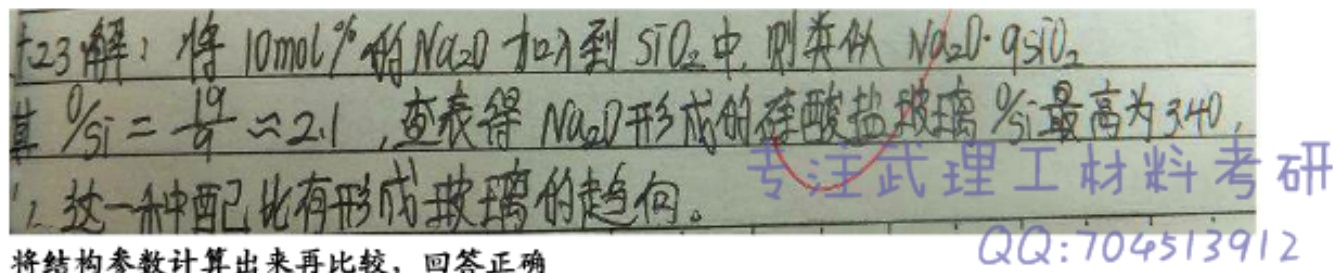 4-23解：将 10mol% 的Na₂O 加入到 SiO₂中，则类似 Na₂O·9SiO₂
其 O/Si = 19/9 ≈ 2.1，查表得 Na₂O形成的硅酸盐玻璃 O/Si最高为 3.40，
∴ 这一种配比有形成玻璃的趋向。
专注武理工材料考研
QQ:704513912
将结构参数计算出来再比较，回答正确